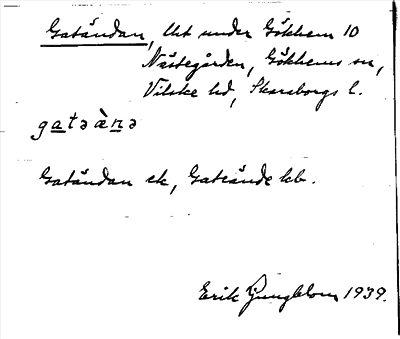 Gatändan, lht under Gökhem 10
Nästegården, Gökhems sn,
Vilske hd, Skaraborgs l.
gatəànə
Gatändan ek, Gateände kb.
Erik Ljungblom 1939.